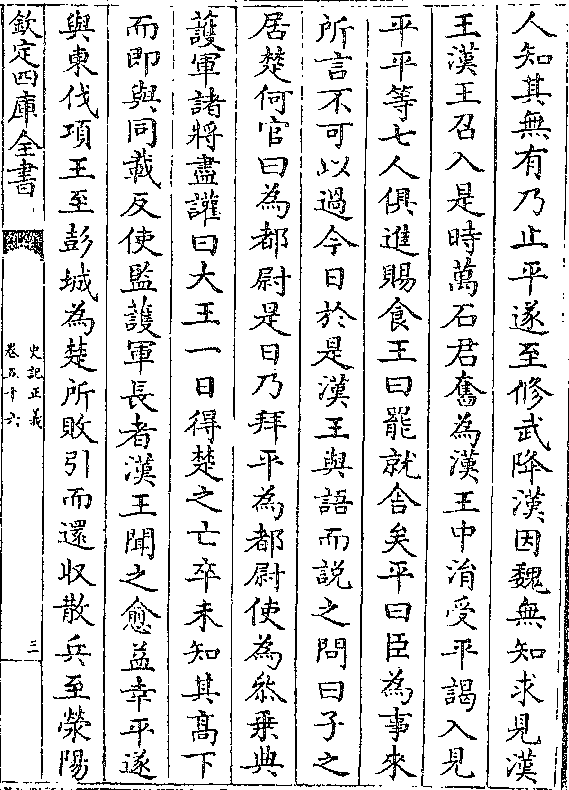 人知其無有乃止平遂至修武降漢因魏無知求見漢
王漢王召入是時萬石君奮為漢王中涓受平謁入見
平平等七人俱進賜食王曰罷就舎矣平曰臣為事來
所言不可以過今日於是漢王與語而説之問曰子之
居楚何官曰為都尉是日乃拜平為都尉使為叅乗典
䕶軍諸將盡讙曰大王一日得楚之亡卒未知其髙下
而即與同載反使監䕶軍長者漢王聞之愈益幸平遂
與東伐項王至彭城為楚所敗引而還収散兵至滎陽
欽定四庫全書
史記正義
卷五十六
三